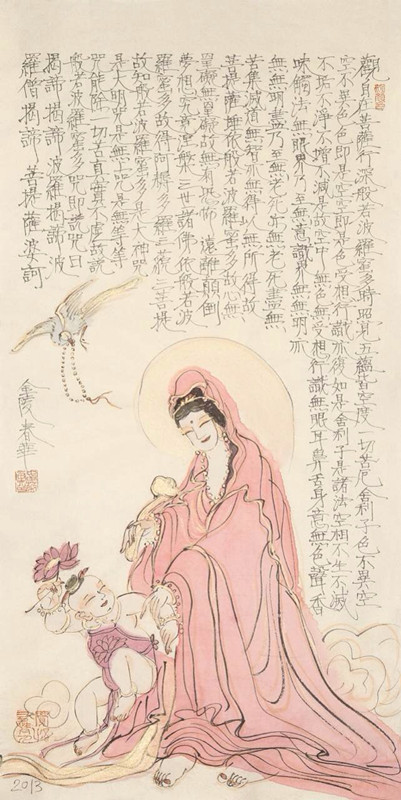 觀自在菩薩行深般若波羅蜜多時照見五蘊皆空度一切苦厄舍利子色不異空
空不異色色即是空空即是色受想行識亦復如是舍利子是諸法空相不生不滅
不垢不淨不增不減是故空中無色無受想行識無眼耳鼻舌身意無色聲香
味觸法無眼界乃至無意識界無無明亦
無無明盡乃至無老死亦無老死盡無
苦集滅道無智亦無得以無所得故
菩提薩埵依般若波羅蜜多故心無
罣礙無罣礙故無有恐怖遠離顛倒
夢想究竟涅槃三世諸佛依般若波
羅蜜多故得阿耨多羅三藐三菩提
故知般若波羅蜜多是大神咒
是大明咒是無上咒是無等等
咒能除一切苦真實不虛故說
般若波羅蜜多咒即說咒曰
揭諦揭諦波羅揭諦波
羅僧揭諦菩提薩婆訶
金陵春華
2013